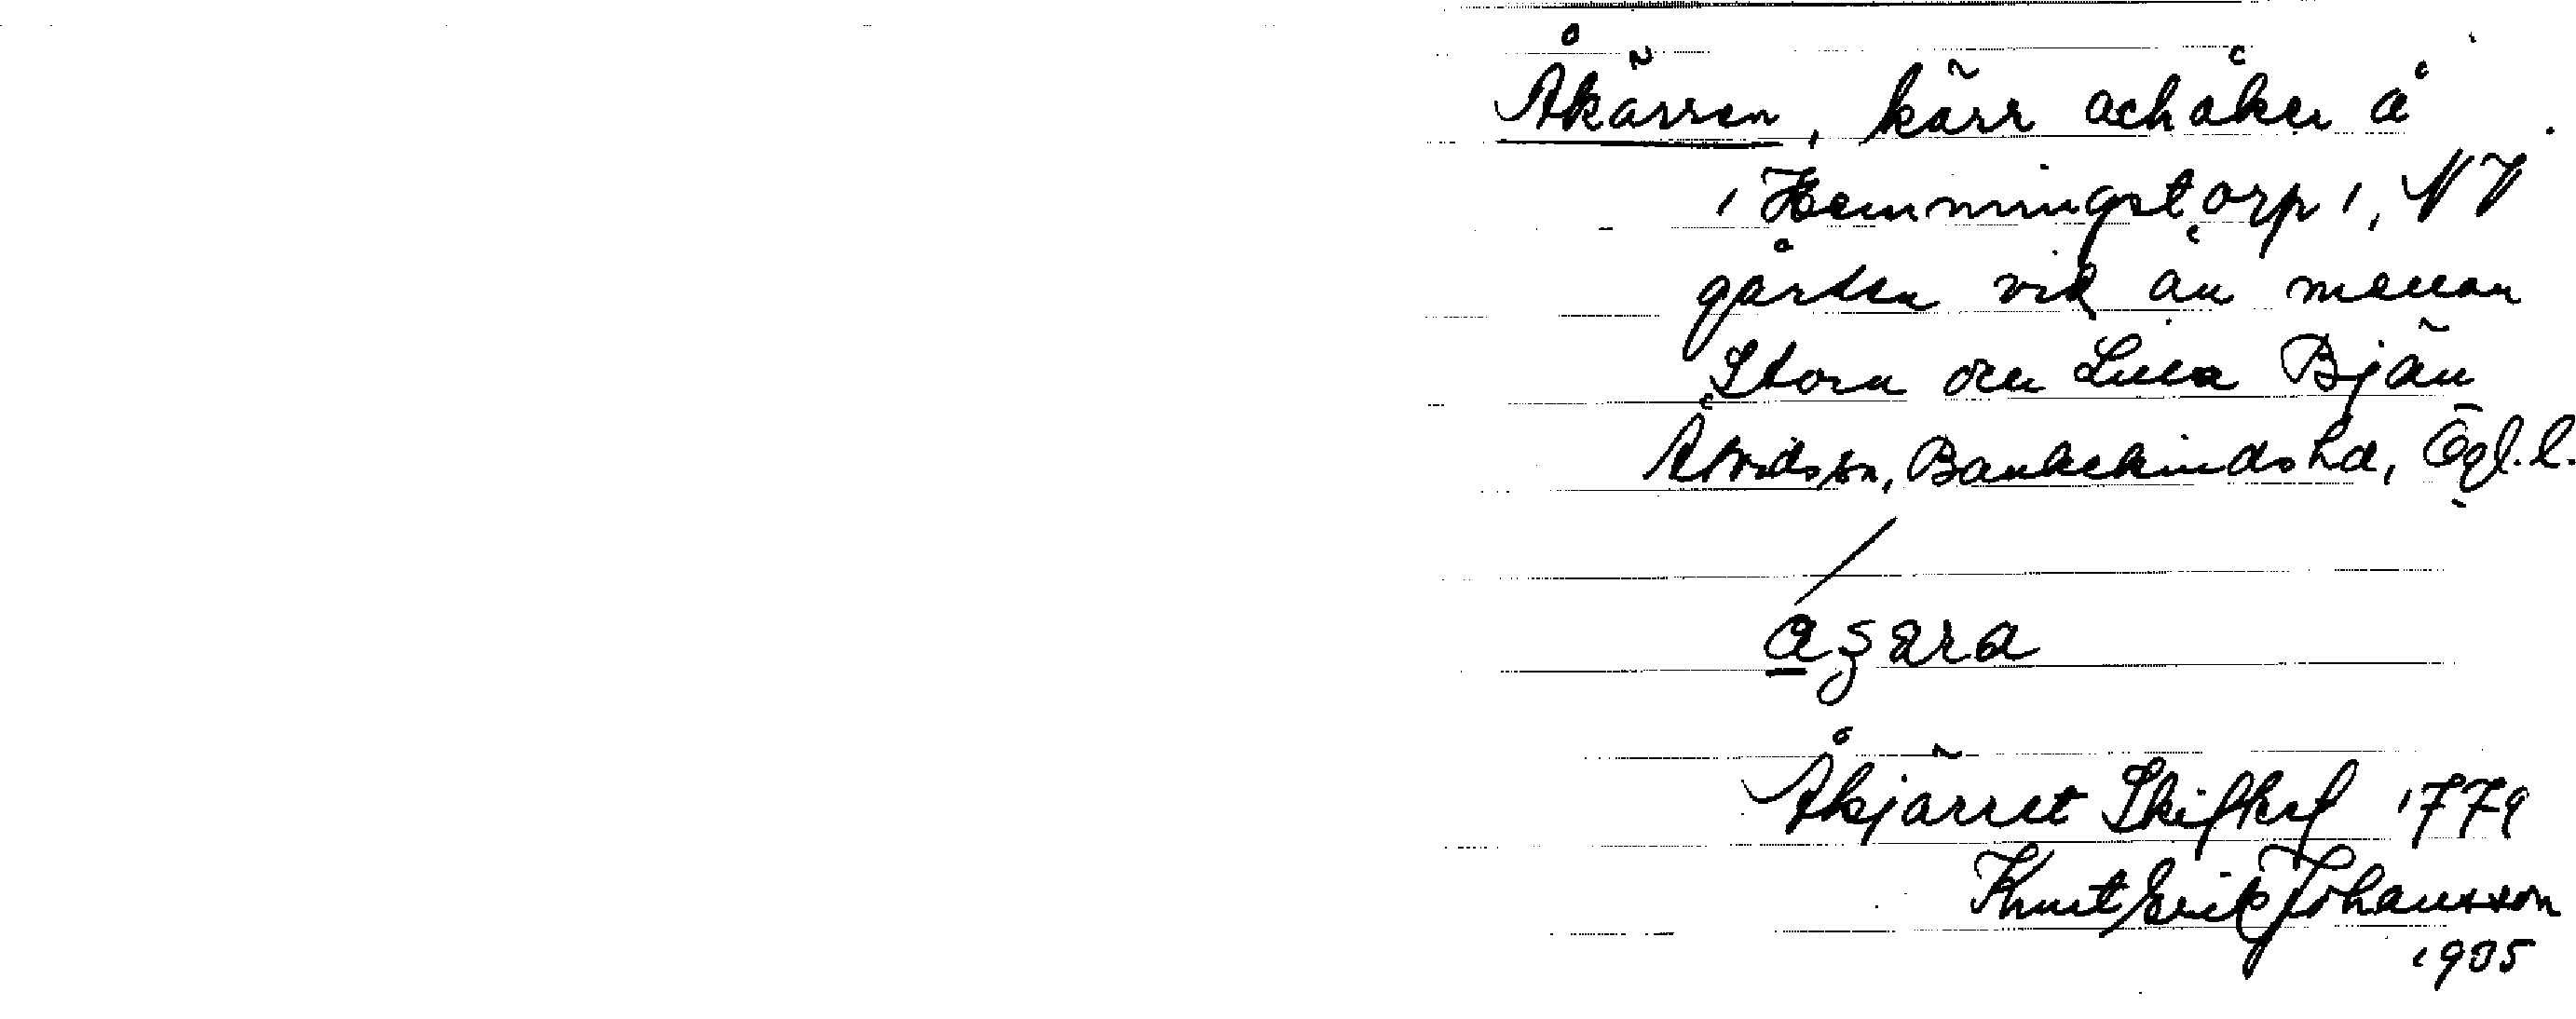 Åkärren, kärr och åker å
/ Hemmingstorp /, NV
gården vid ån mellan
Stora och Lilla Bjän
Åtvidsbn, Bankekinds hd, Ögl. l.
Åkjärret Skifteskf 1779
Knut Erik Johansson
1935